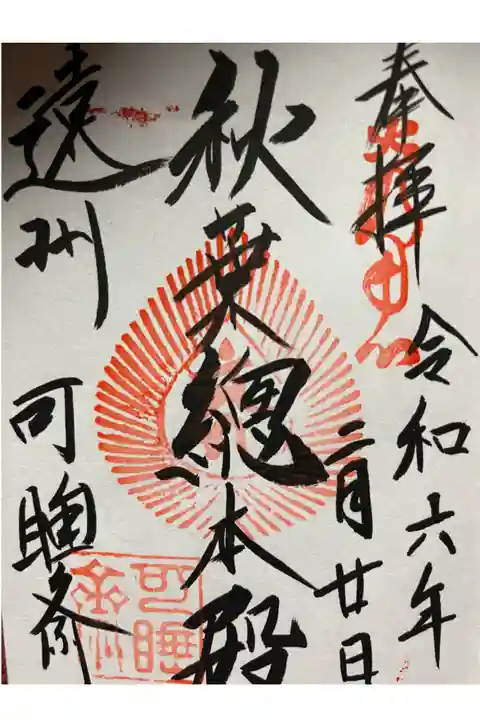 奉拝
令和六年
二月廿日
秋葉總本殿
遠州 可睡斎